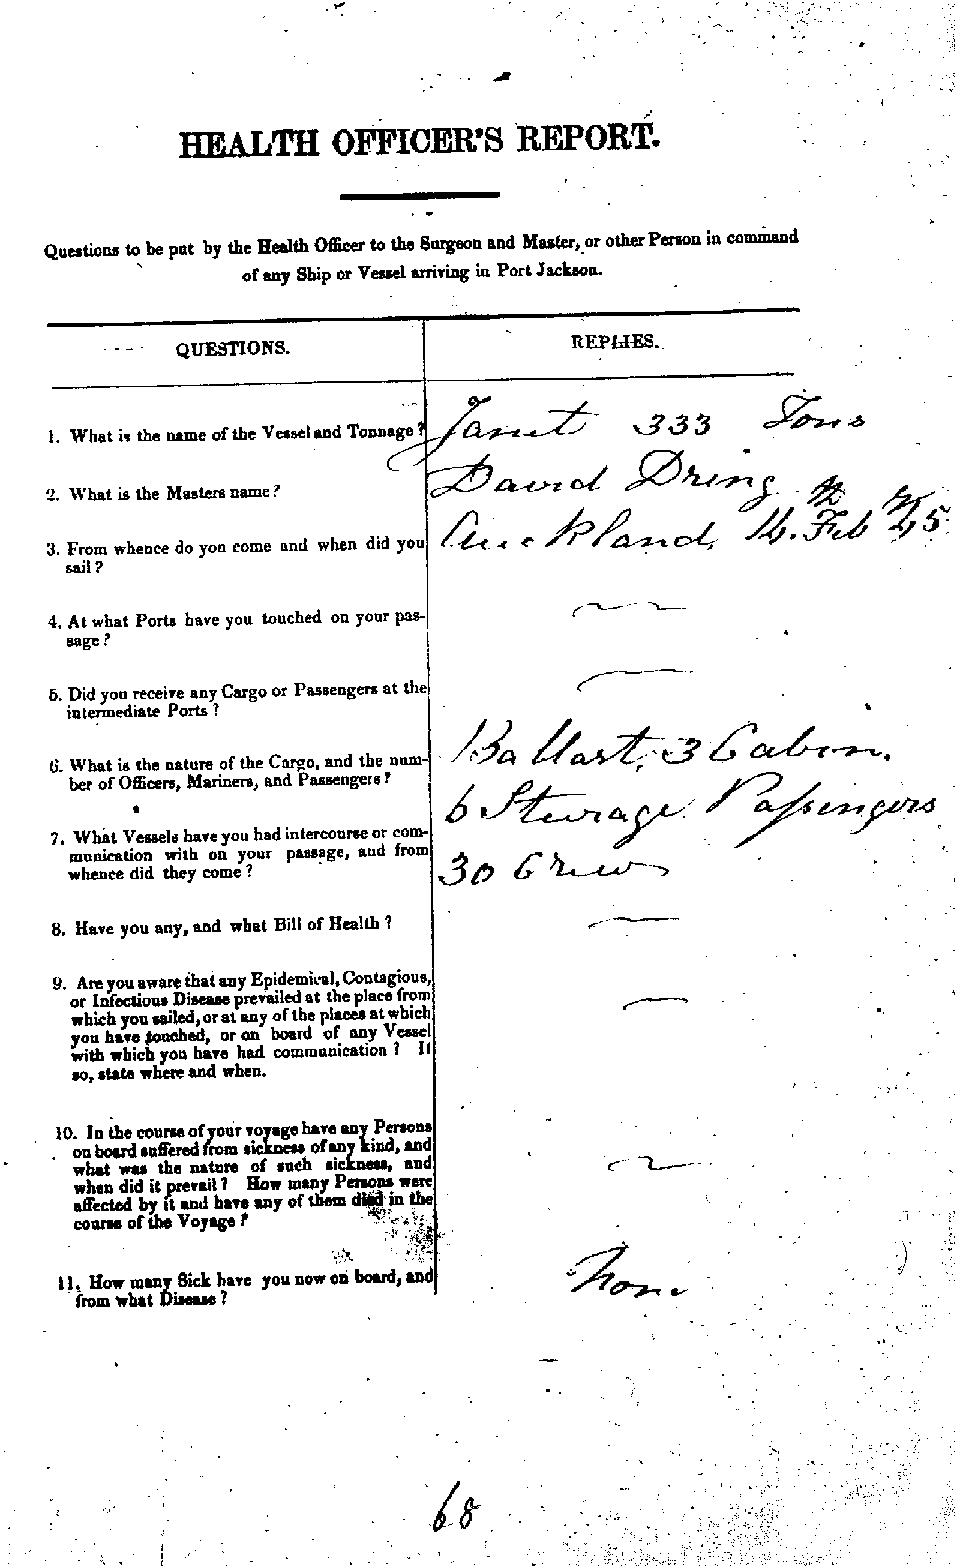 HEALTH OFFICER'S REPORT.
Questions to be put by the Health Officer to the Surgeon and Master, or other Person in command
of any Ship or Vessel arriving in Port Jackson.
QUESTIONS.
REPLIES.
1. What is the name of the Vessel and Tonnage?
Janet 333 Tons
2. What is the Masters name?
David Dring
3. From whence do you come and when did you
sail?
Auckland, 14th Feb 45
4. At what Ports have you touched on your pas-
sage?
5. Did you receive any Cargo or Passengers at the
intermediate Ports?
6. What is the nature of the Cargo, and the num-
ber of Officers, Mariners, and Passengers?
Ballast, 3 Cabin.
6 Sturage Passengers
30 Crew
7. What Vessels have you had intercourse or com-
munication with on your passage, and from
whence did they come?
8. Have you any, and what Bill of Health?
9. Are you aware that any Epidemical, Contagious,
or Infectious Disease prevailed at the place from
which you sailed, or at any of the places at which
you have touched, or on board of any Vessel
with which you have had communication? If
so, state where and when.
10. In the course of your voyage have any Persons
on board suffered from sickness of any kind, and
what was the nature of such sickness, and
when did it prevail? How many Persons were
affected by it and have any of them died in the
course of the Voyage?
11. How many Sick have you now on board, and
from what Disease?
None
68